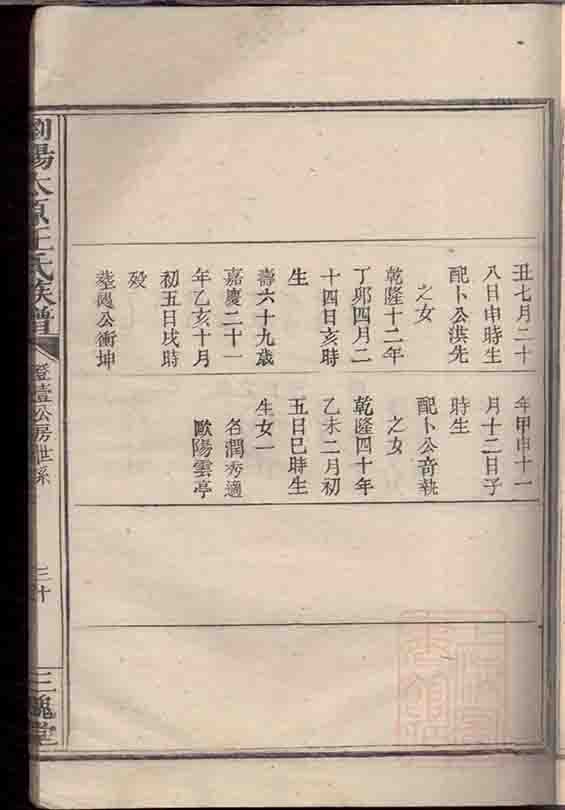 丑七月二十
八日申時生
配卜公淇先
之女
乾隆十二年
丁夘四月二
十四日亥時
生
壽六十九歲
嘉慶二十一
年乙亥十月
初五日戌時
殁
塟 公衝坤
年甲申十一
月十二日子
時生
配卜公音執
之女
乾隆四十年
乙未二月初
五日巳時生
生女一
名潤秀適
歐陽雲亭
瀏陽太原王氏族譜
公房世系
三十
三槐堂